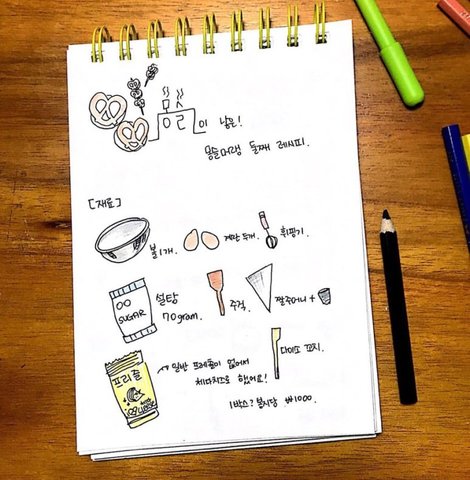 이 낳은!
몽블머랭 둘째 레시피.
[재료]
볼1개. 계란 두개. 휘핑기.
OO SUGAR
설탕 70gram.
주걱.
짤주머니 +
프리즐
일반 프레즐이 없어서
체다치즈로 했어요!
다이소 꼬지.
1박스? 봉지당 ₩1000.